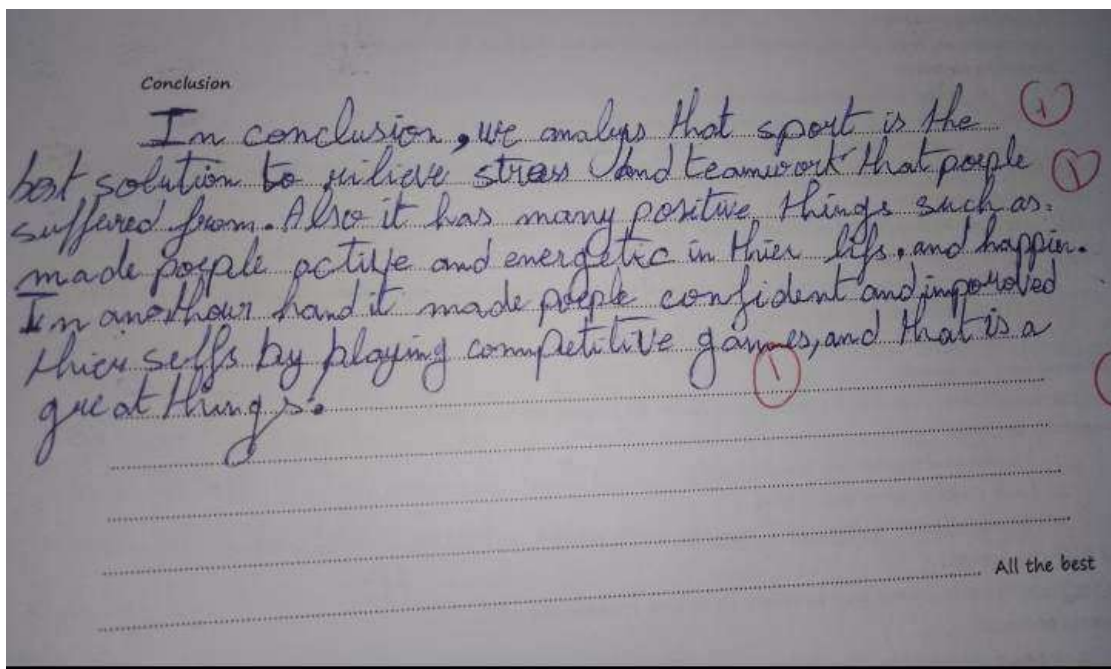 Conclusion
In conclusion, we analys that sport is the
best solution to rilieve stress and teamwork that poeple
suffered from. Also it has many positive things such as:
made poeple active and energetic in thier lifs, and happier.
In anothour hand it made poeple confident and imporoved
thier selfs by playing competitive games, and that is a
great things.
1
1
1
All the best